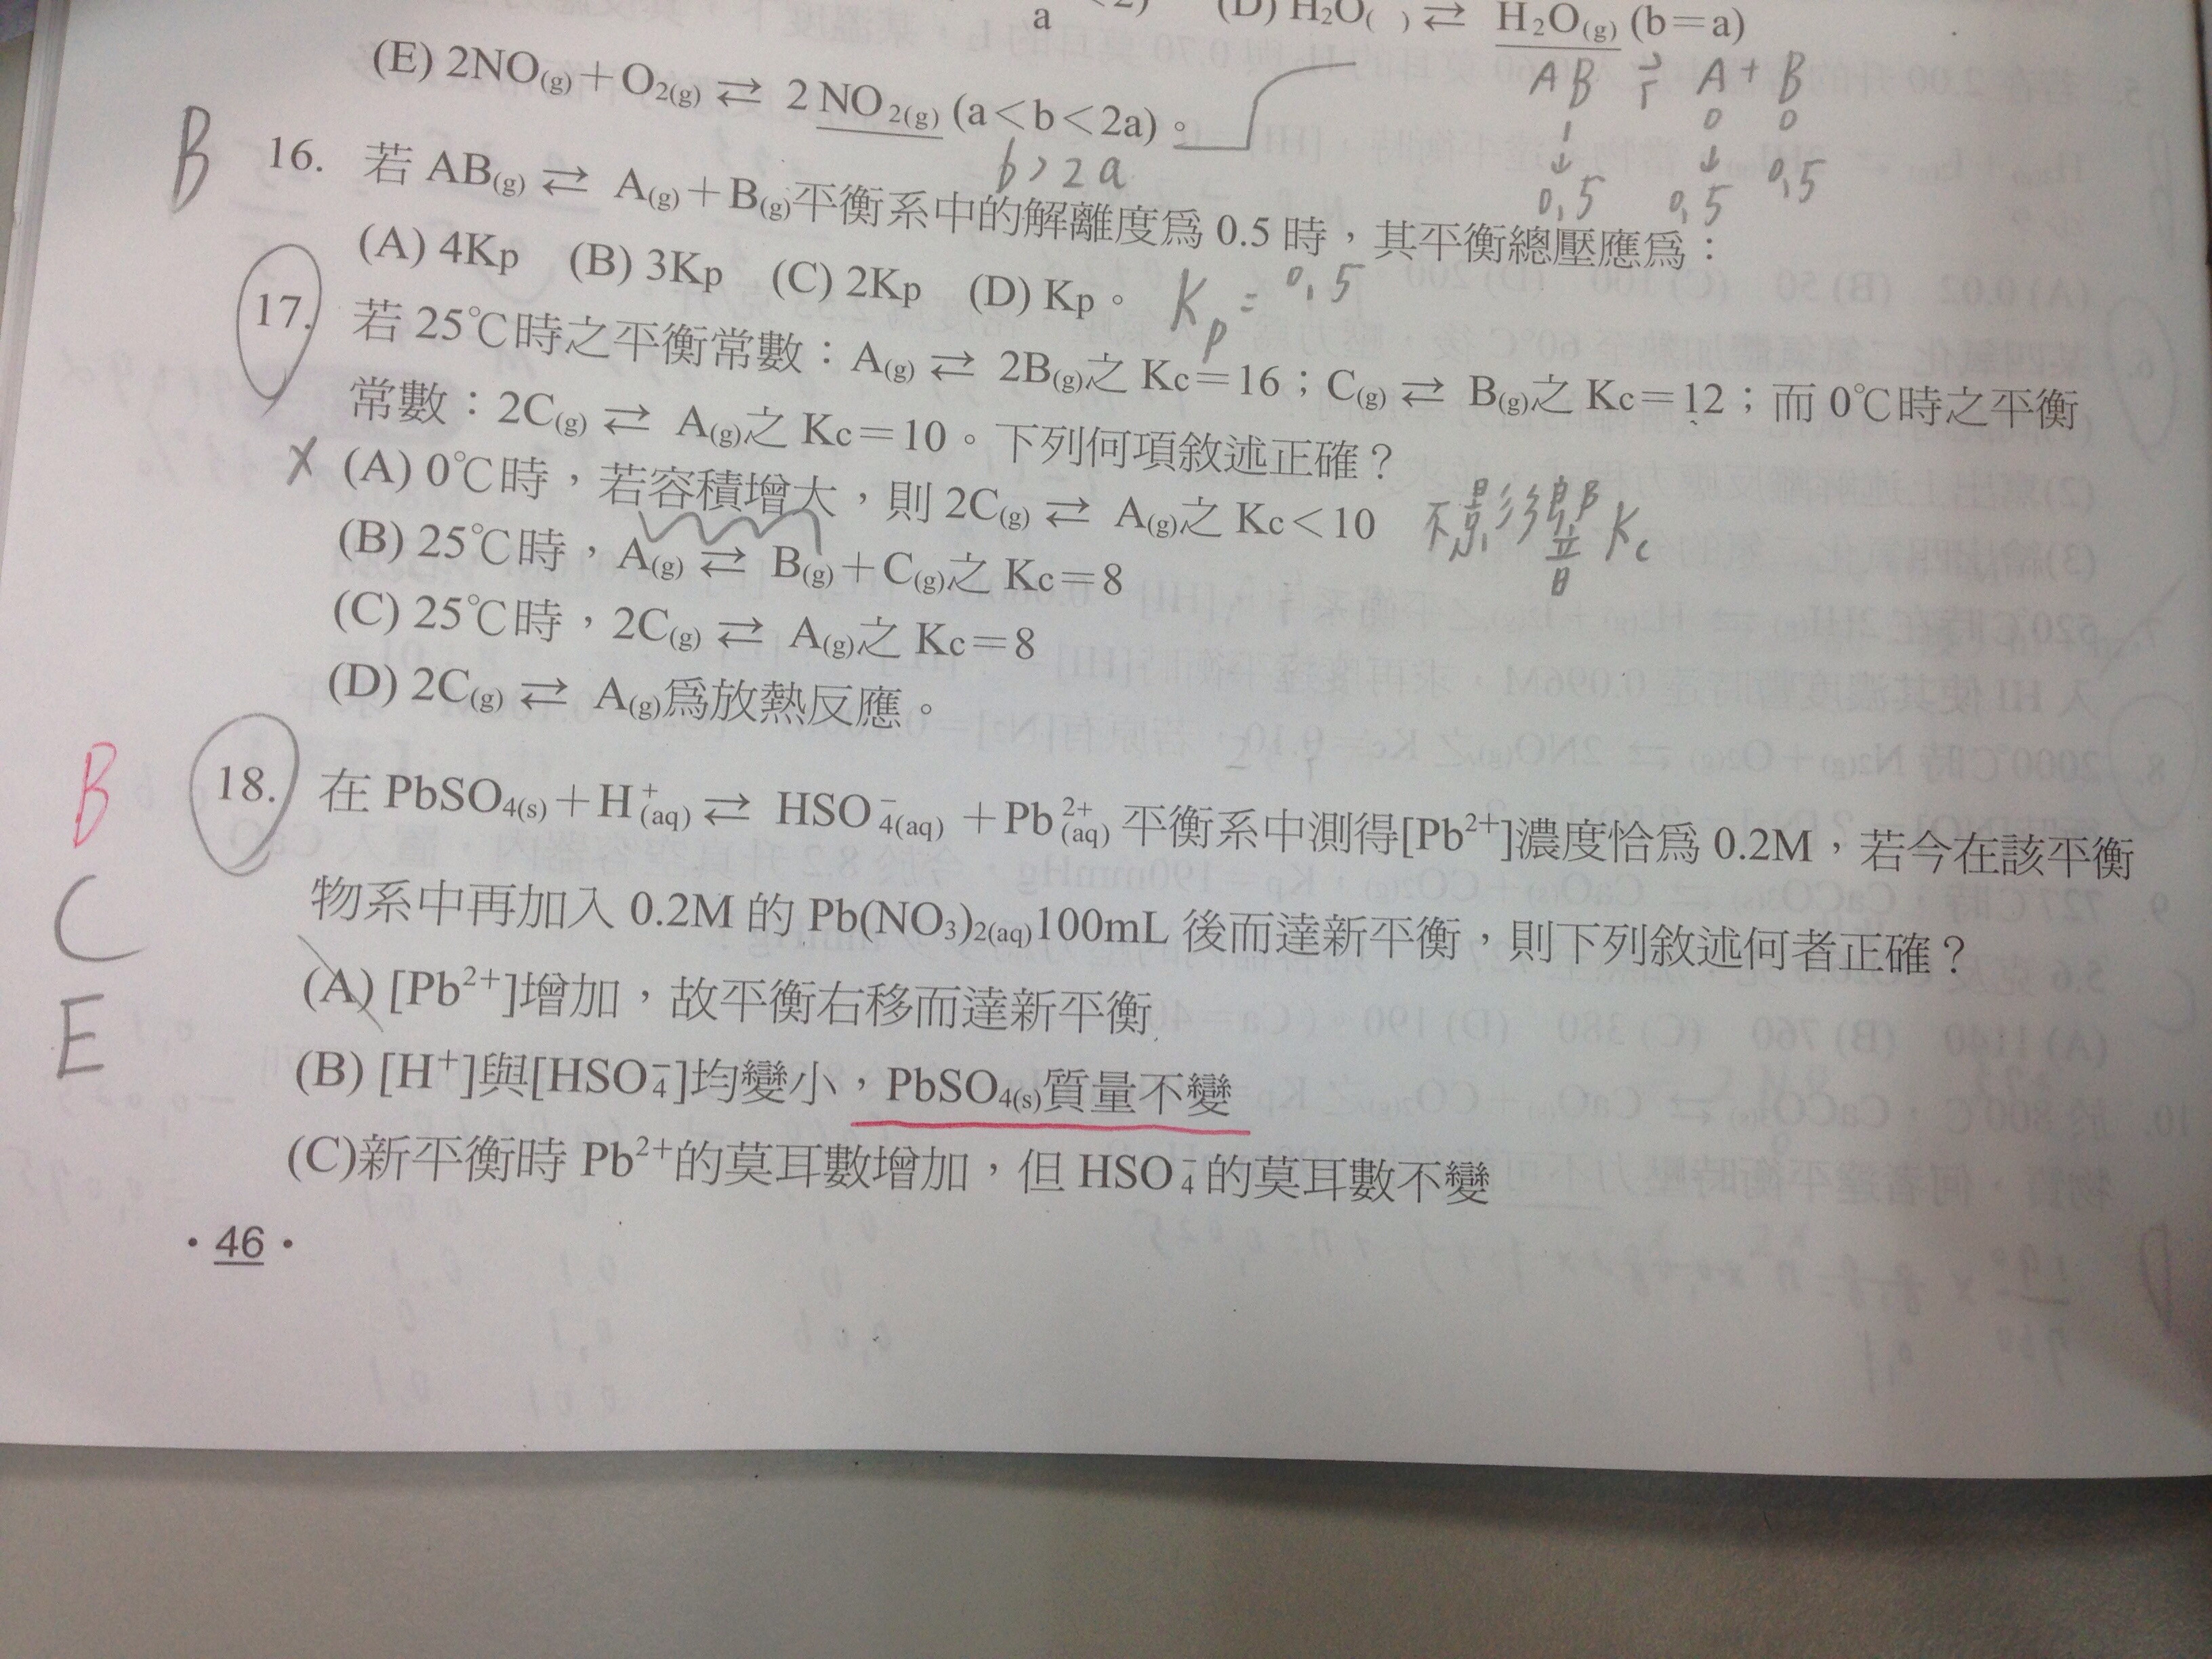 a <2) (D) H₂O( ) ⇄ H₂O(g) (b=a)
(E) 2NO(g)+O₂(g) ⇄ 2NO₂(g) (a<b<2a)。
b>2a
AB ⇄ A+B
1 0 0
↓ ↓
0.5 0.5 0.5
B 16. 若 AB(g) ⇄ A(g)+B(g)平衡系中的解離度為 0.5 時，其平衡總壓應為：
(A) 4Kp (B) 3Kp (C) 2Kp (D) Kp。 Kp = 0.5
17. 若 25℃時之平衡常數：A(g) ⇄ 2B(g)之 Kc=16；C(g) ⇄ B(g)之 Kc=12；而 0℃時之平衡
常數：2C(g) ⇄ A(g)之 Kc=10。下列何項敘述正確？
X (A) 0℃時，若容積增大，則 2C(g) ⇄ A(g)之 Kc<10 不影響 Kc
(B) 25℃時，A(g) ⇄ B(g)+C(g)之 Kc=8
(C) 25℃時，2C(g) ⇄ A(g)之 Kc=8
(D) 2C(g) ⇄ A(g)為放熱反應。
B C E
18. 在 PbSO₄(s)+H⁺(aq) ⇄ HSO₄⁻(aq)+Pb²⁺(aq) 平衡系中測得[Pb²⁺]濃度恰為 0.2M，若今在該平衡
物系中再加入 0.2M 的 Pb(NO₃)₂(aq)100mL 後而達新平衡，則下列敘述何者正確？
(A) [Pb²⁺]增加，故平衡右移而達新平衡
(B) [H⁺]與[HSO₄⁻]均變小，PbSO₄(s)質量不變
(C)新平衡時 Pb²⁺的莫耳數增加，但 HSO₄⁻的莫耳數不變
·46·